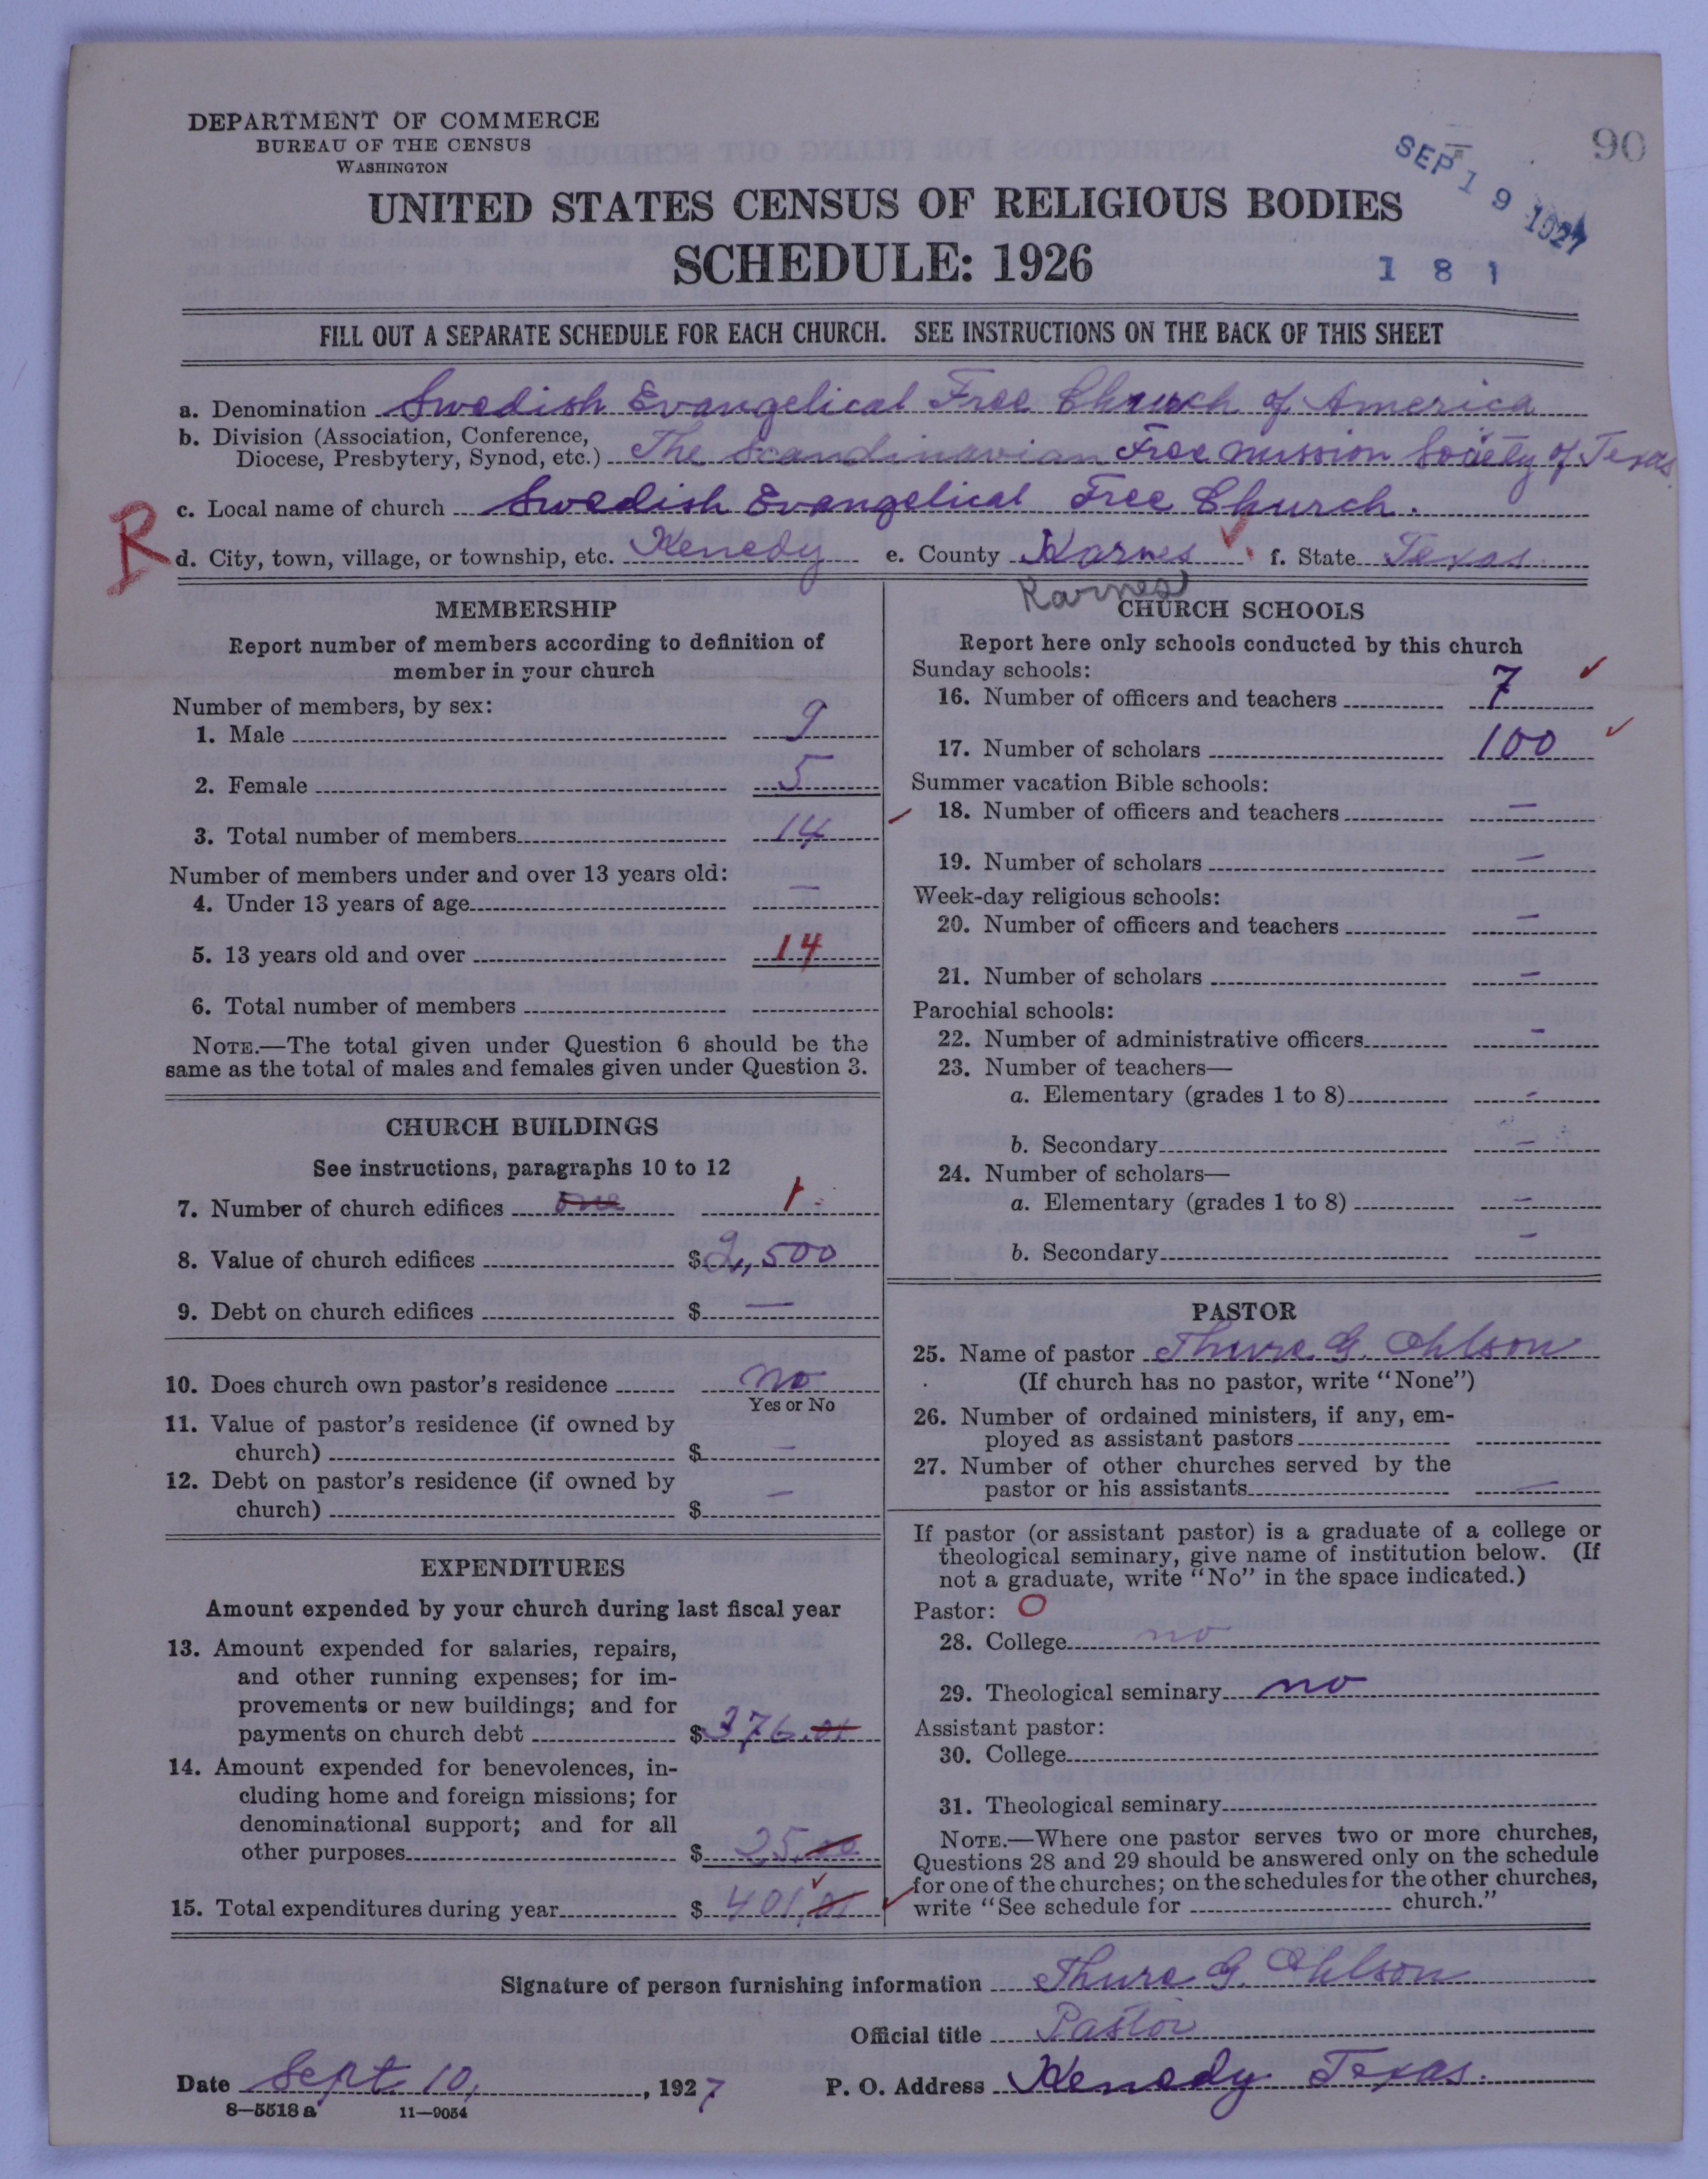 DEPARTMENT OF COMMERCE
BUREAU OF THE CENSUS
WASHINGTON
90
SEP 19 1927
UNITED STATES CENSUS OF RELIGIOUS BODIES
SCHEDULE: 1926
1 8 1
FILL OUT A SEPARATE SCHEDULE FOR EACH CHURCH. SEE INSTRUCTIONS ON THE BACK OF THIS SHEET
a. Denomination Swedish Evangelical Free Church of America
b. Division (Association, Conference,
Diocese, Presbytery, Synod, etc.) The Scandinavian Free Mission Society of Texas
R
c. Local name of church Swedish Evangelical Free Church.
d. City, town, village, or township, etc. Kenedy e. County Karnes f. State Texas.
Karnes
MEMBERSHIP
Report number of members according to definition of
member in your church
Number of members, by sex:
1. Male 9
2. Female 5
3. Total number of members 14
Number of members under and over 13 years old:
4. Under 13 years of age —
5. 13 years old and over 14
6. Total number of members
NOTE.—The total given under Question 6 should be the
same as the total of males and females given under Question 3.
CHURCH BUILDINGS
See instructions, paragraphs 10 to 12
7. Number of church edifices one 1
8. Value of church edifices $2,500
9. Debt on church edifices $ —
10. Does church own pastor's residence no
Yes or No
11. Value of pastor's residence (if owned by
church) $ —
12. Debt on pastor's residence (if owned by
church) $ —
EXPENDITURES
Amount expended by your church during last fiscal year
13. Amount expended for salaries, repairs,
and other running expenses; for im-
provements or new buildings; and for
payments on church debt $376.01
14. Amount expended for benevolences, in-
cluding home and foreign missions; for
denominational support; and for all
other purposes $25.00
15. Total expenditures during year $401.01
CHURCH SCHOOLS
Report here only schools conducted by this church
Sunday schools:
16. Number of officers and teachers 7
17. Number of scholars 100
Summer vacation Bible schools:
18. Number of officers and teachers —
19. Number of scholars —
Week-day religious schools:
20. Number of officers and teachers —
21. Number of scholars —
Parochial schools:
22. Number of administrative officers —
23. Number of teachers—
a. Elementary (grades 1 to 8) —
b. Secondary —
24. Number of scholars—
a. Elementary (grades 1 to 8) —
b. Secondary —
PASTOR
25. Name of pastor Thure G. Ohlson
(If church has no pastor, write "None")
26. Number of ordained ministers, if any, em-
ployed as assistant pastors
27. Number of other churches served by the
pastor or his assistants —
If pastor (or assistant pastor) is a graduate of a college or
theological seminary, give name of institution below. (If
not a graduate, write "No" in the space indicated.)
Pastor: O
28. College no
29. Theological seminary no
Assistant pastor:
30. College
31. Theological seminary
NOTE.—Where one pastor serves two or more churches,
Questions 28 and 29 should be answered only on the schedule
for one of the churches; on the schedules for the other churches,
write "See schedule for church."
Signature of person furnishing information Thure G. Ohlson
Official title Pastor
Date Sept. 10, 1927 P. O. Address Kenedy Texas.
8—5518 a 11—9054